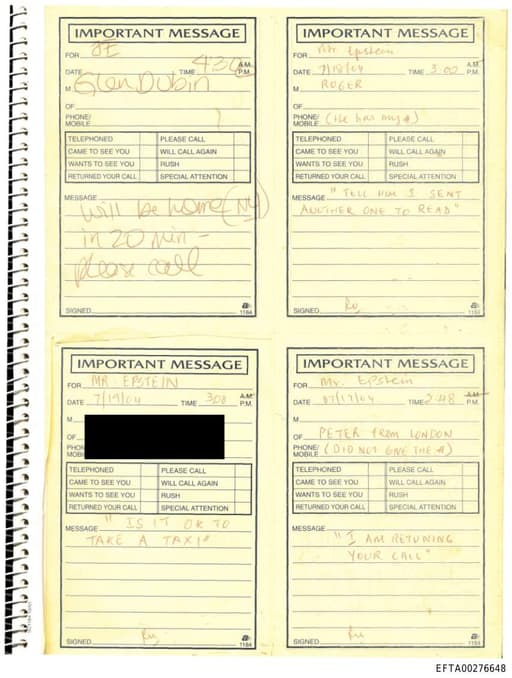 IMPORTANT MESSAGE
FOR JE
DATE TIME 4:30 A.M. P.M.
M Glen Dubin
OF
PHONE/
MOBILE
TELEPHONED PLEASE CALL
CAME TO SEE YOU WILL CALL AGAIN
WANTS TO SEE YOU RUSH
RETURNED YOUR CALL SPECIAL ATTENTION
MESSAGE
will be home (NY)
in 20 min -
please call
SIGNED 1184
IMPORTANT MESSAGE
FOR Mr Epstein
DATE 7/18/04 TIME 3:00 A.M. P.M.
M ROGER
OF
PHONE/
MOBILE (He has my #)
TELEPHONED PLEASE CALL
CAME TO SEE YOU WILL CALL AGAIN
WANTS TO SEE YOU RUSH
RETURNED YOUR CALL SPECIAL ATTENTION
MESSAGE "TELL HIM I SENT
ANOTHER ONE TO READ"
SIGNED 1184
IMPORTANT MESSAGE
FOR MR. EPSTEIN
DATE 7/19/04 TIME 3:08 A.M. P.M.
M
OF
PHON
MOBI
TELEPHONED PLEASE CALL
CAME TO SEE YOU WILL CALL AGAIN
WANTS TO SEE YOU RUSH
RETURNED YOUR CALL SPECIAL ATTENTION
MESSAGE "IS IT OK TO
TAKE A TAXI"
SIGNED 1184
IMPORTANT MESSAGE
FOR Mr. Epstein
DATE 07/17/04 TIME 2:48 A.M. P.M.
M
OF PETER FROM LONDON
PHONE/
MOBILE (DID NOT GIVE THE #)
TELEPHONED PLEASE CALL
CAME TO SEE YOU WILL CALL AGAIN
WANTS TO SEE YOU RUSH
RETURNED YOUR CALL SPECIAL ATTENTION
MESSAGE
"I AM RETUNING
YOUR CALL"
SIGNED 1184
EFTA00276648